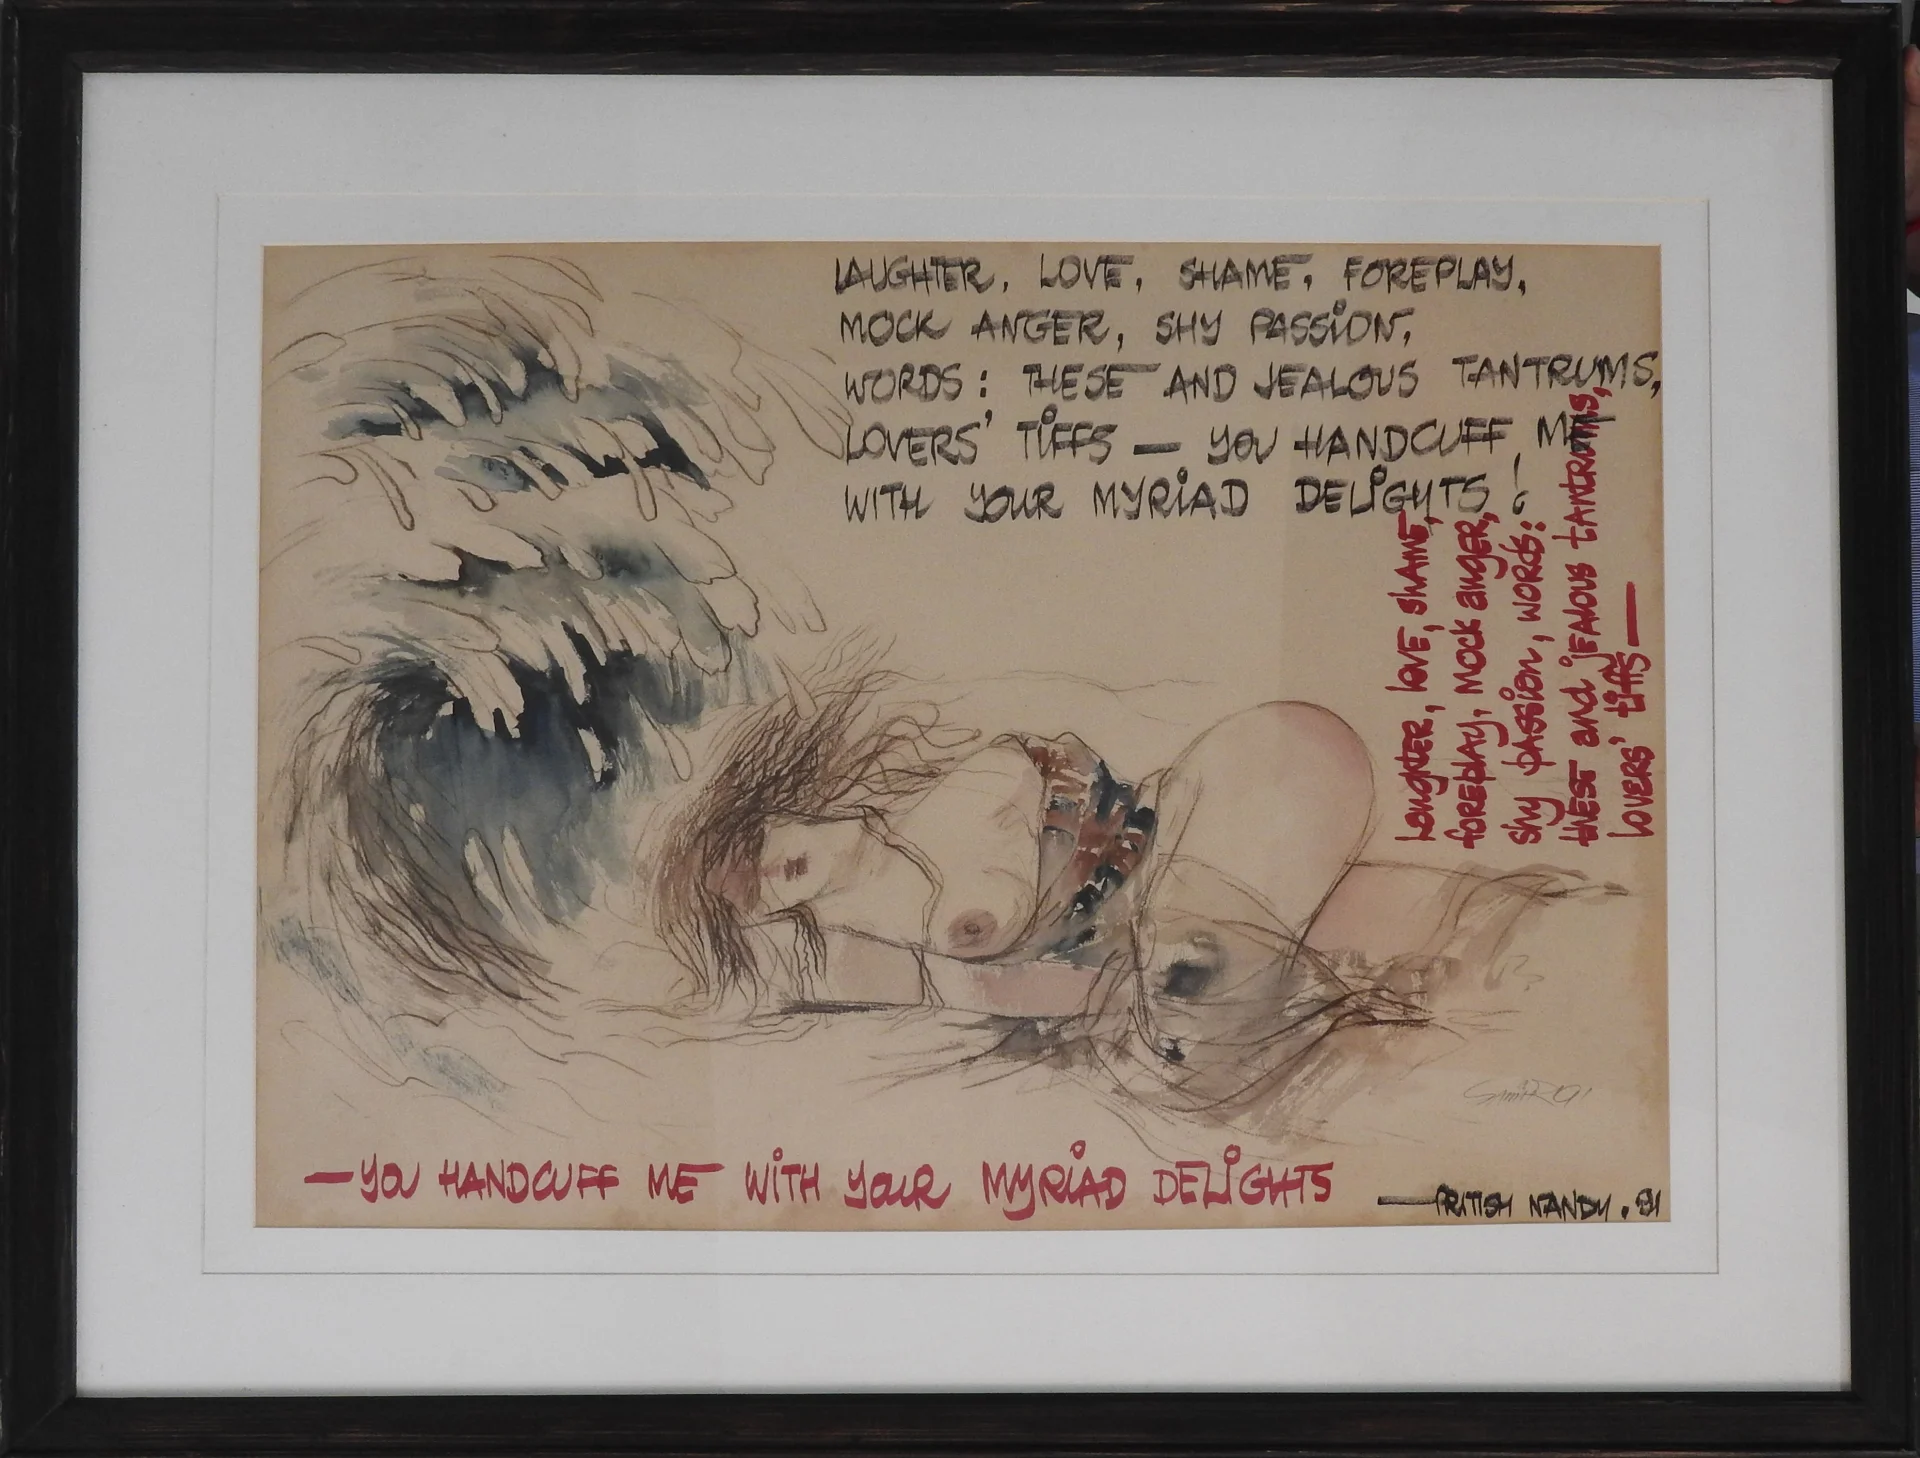 LAUGHTER, LOVE, SHAME, FOREPLAY,
MOCK ANGER, SHY PASSION,
WORDS: THESE AND JEALOUS TANTRUMS,
LOVERS' TIFFS — YOU HANDCUFF ME
WITH YOUR MYRIAD DELIGHTS!
Laughter, love, shame,
foreplay, mock anger,
shy passion, words:
these and jealous tantrums,
lovers' tiffs —
— YOU HANDCUFF ME WITH YOUR MYRIAD DELIGHTS
— PRITISH NANDY. 91